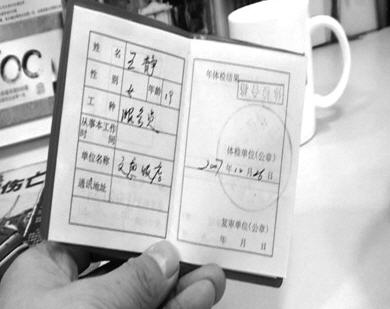 姓名 王静
性别 女 年龄 19
工种 服务员
从事本工作
时间
单位名称
通讯地址
年体检结果
体检单位(公章)
2007年10月26日
复审单位(公章)
年 月 日
OC
伤亡